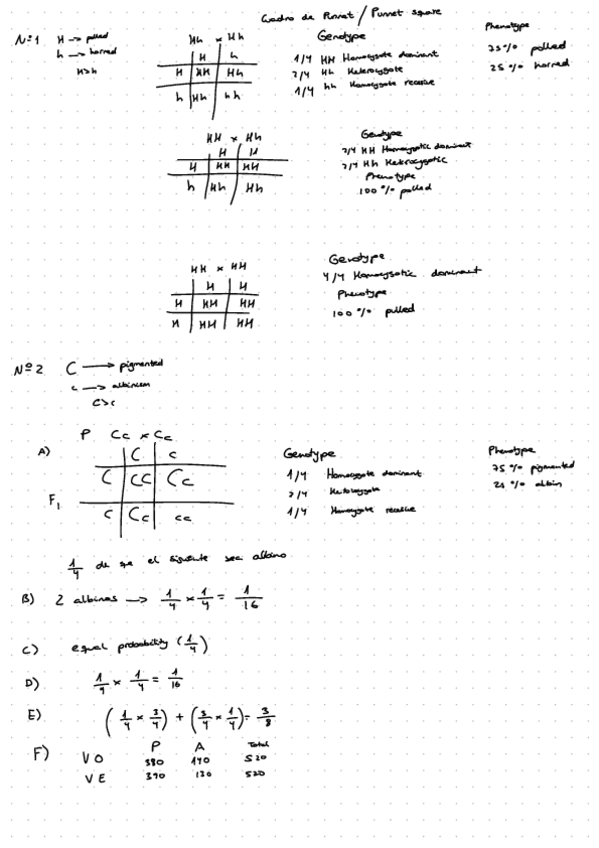 Cuadro de Punnet / Punnet square
Nº1 H → polled
h → horned
H>h
Hh x Hh
H h
H HH Hh
h Hh hh
Genotype
1/4 HH Homozygote dominant
2/4 Hh Heterozygote
1/4 hh Homozygote recessive
Phenotype
75% polled
25% horned
HH x Hh
H H
H HH HH
h Hh Hh
Genotype
2/4 HH Homozygotic dominant
2/4 Hh Heterozygotic
Phenotype
100% polled
HH x HH
H H
H HH HH
H HH HH
Genotype
4/4 Homozygotic dominant
Phenotype
100% polled
Nº2 C → pigmented
c → albinism
C>c
A) P Cc x Cc
C c
C CC Cc
F1
c Cc cc
Genotype
1/4 Homozygote dominant
2/4 Heterozygote
1/4 Homozygote recessive
Phenotype
75% pigmented
25% albin
1/4 de que el siguiente sea albino
B) 2 albinos → 1/4 x 1/4 = 1/16
C) equal probability (1/4)
D) 1/4 x 1/4 = 1/16
E) (1/4 x 3/4) + (3/4 x 1/4) = 3/8
F) P A Total
VO 380 140 520
VE 390 130 520